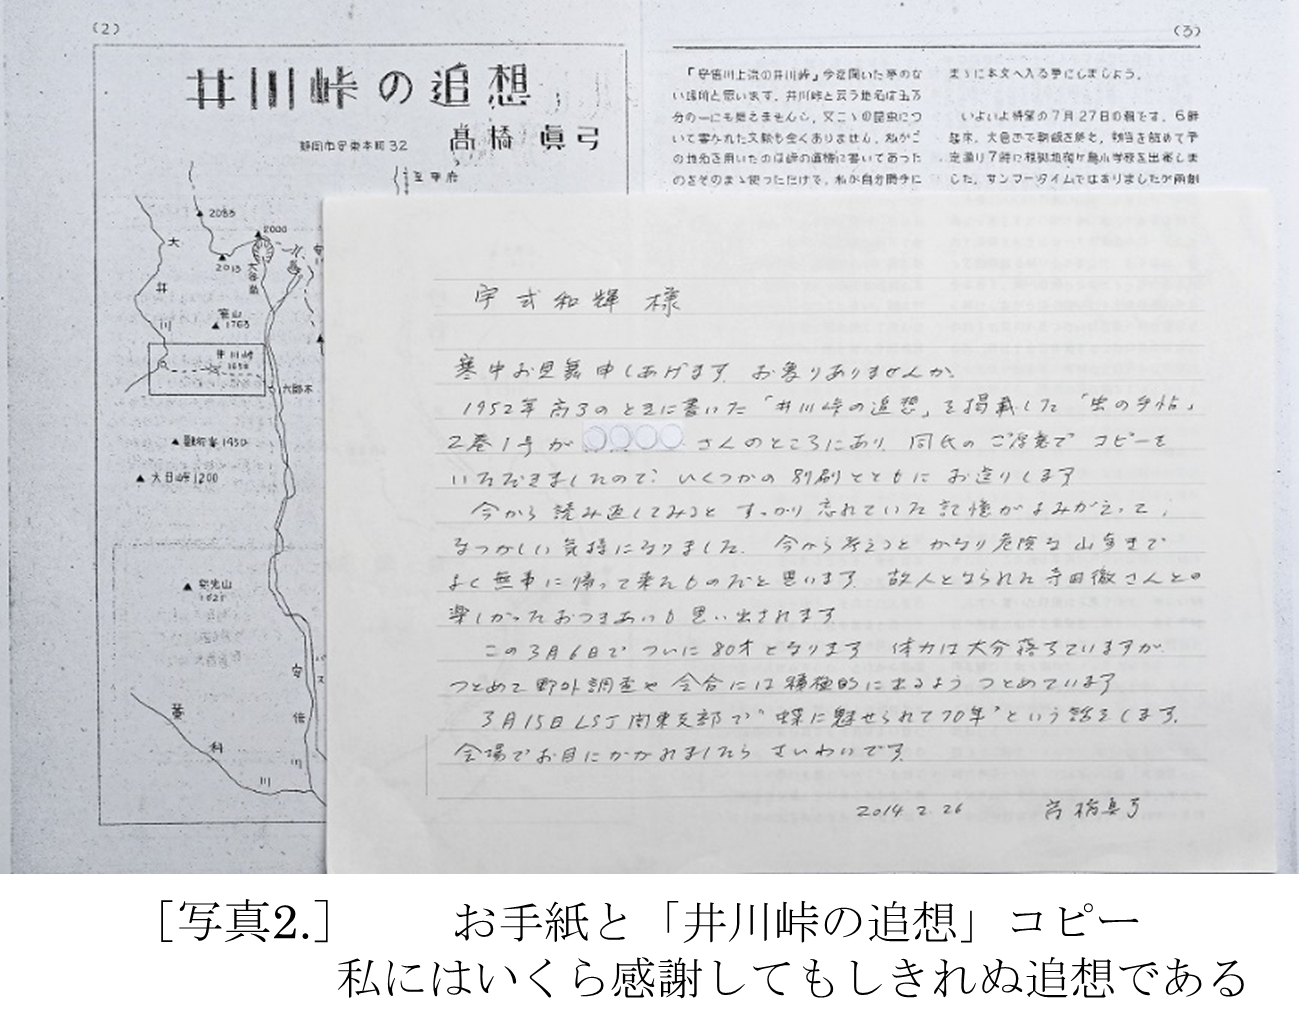 (2)
井川峠の追想
静岡市安東本町32 高橋 眞弓
至甲府
▲2083
▲2000
2013
大谷嶺
大井川
笹山
▲1763
井川峠
1650
六郎木
▲大日峠1200
安倍川
バス
藁科川
(3)
「安倍川上流の井川峠」今迄聞いた事のな
い場所と思います。井川峠と云う地名は五万
分の一にも見えませんし、又こゝの昆虫につ
いて書かれた文献も全くありません。私がこ
の地名を用いたのは峠の道標に書いてあった
のをそのまゝ使っただけで、私が自分勝手に
まゝに本文へ入る事にしましょう。
いよいよ待望の7月27日の朝です。6時
起床、大急ぎで朝飯を終え、弁当を詰めて予
定通り7時に根拠地梅ヶ島小学校を出発しま
した。サンマータイムではありましたが雨創
宇式和輝 様
寒中お見舞申しあげます。お変りありませんか。
1952年高3のときに書いた「井川峠の追想」を掲載した「虫の手帖」
2巻1号が○○○○さんのところにあり、同氏のご厚意でコピーを
いただきましたので、いくつかの別刷とともにお送りします
今から読み返してみると すっかり忘れていた記憶がよみがえって、
なつかしい気持になりました。今から考えると かなり危険な山歩きで
よく無事に帰って来たものだと思います。故人となられた寺田徹さんとの
楽しかったおつきあいも思い出されます
この3月6日で ついに80才となります 体力は大分落ちていますが、
つとめて野外調査や会合には積極的に出るよう つとめています
3月15日LSJ関東支部で"蝶に魅せられて70年"という話をします。
会場でお目にかかれましたら さいわいです。
2014.2.26 高橋真弓
［写真2.］ お手紙と「井川峠の追想」コピー
私にはいくら感謝してもしきれぬ追想である